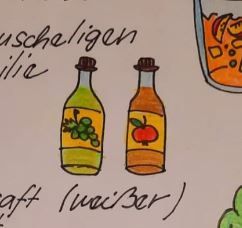 uscheligen
ilie
aft (weißer)